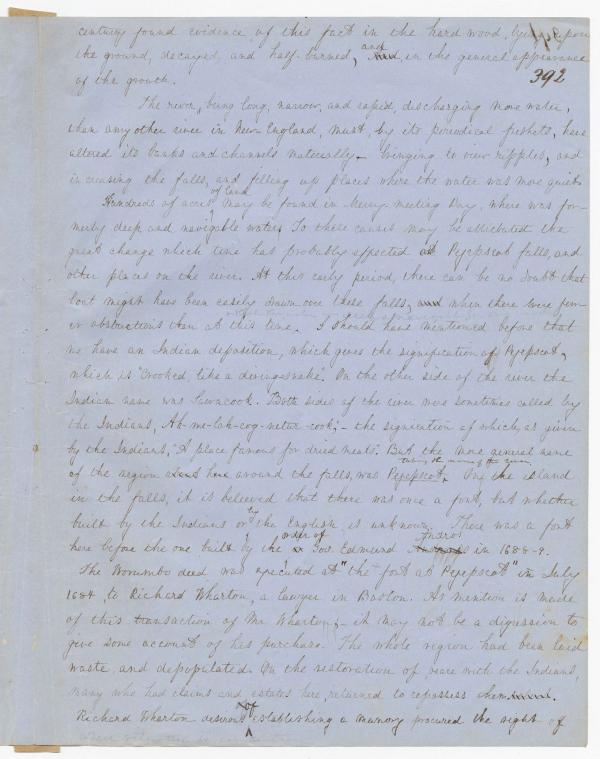 century found evidence of this fact in the hard wood, lying upon
392
the ground, decayed, and half-burned, and in the general appearance
of the growth.
The river, being long, narrow, and rapid, discharging more water,
than any other river in New-England, must, by its periodical freshets, have
altered its banks and channels materially – bringing to view ripples, and
increasing the falls, and filling up places where the water was more quiet.
Hundreds of acres of land may be found in Merry-meeting Bay, where was for-
merly deep and navigable water. To these causes may be attributed the
great change which time has probably effected at Pejepscot falls, and
other places on the river. At this early period, there can be no doubt that
boat might have been easily drawn over these falls, and when there were few-
er obstructions than at this time. I should have mentioned before that
we have an Indian deposition, which gives the signification of Pejepscot,
which is "Crooked, like a diving snake. On the other side of the river the
Indian name was Sawacook. Both sides of the river were sometimes called by
the Indians, Ah-me-lah-cog-netur-cook; – the signication of which, as given
by the Indians, "A place famous for dried meats". But the more general name
of the region about here around the falls, was Pejepscot. On the island
in the falls, it is believed that there was once a fort, but whether
built by the Indians or by the English is unknown. There was a fort
here before the one built by the order of Gov. Edmund Andros in 1688-9.
The Worumbo deed, was executed at "the fort at Pejepscot" in July
1684, to Richard Wharton, a lawyer in Boston. As mention is made
of this transaction of Mr. Wharton, – it may not be a digression to
give some account of his purchase. The whole region had been laid
waste, and depopulated. On the restoration of peace with the Indians,
many who had claims and estates here, returned to repossess them.
Richard Wharton desirous of establishing a manory procured the right of